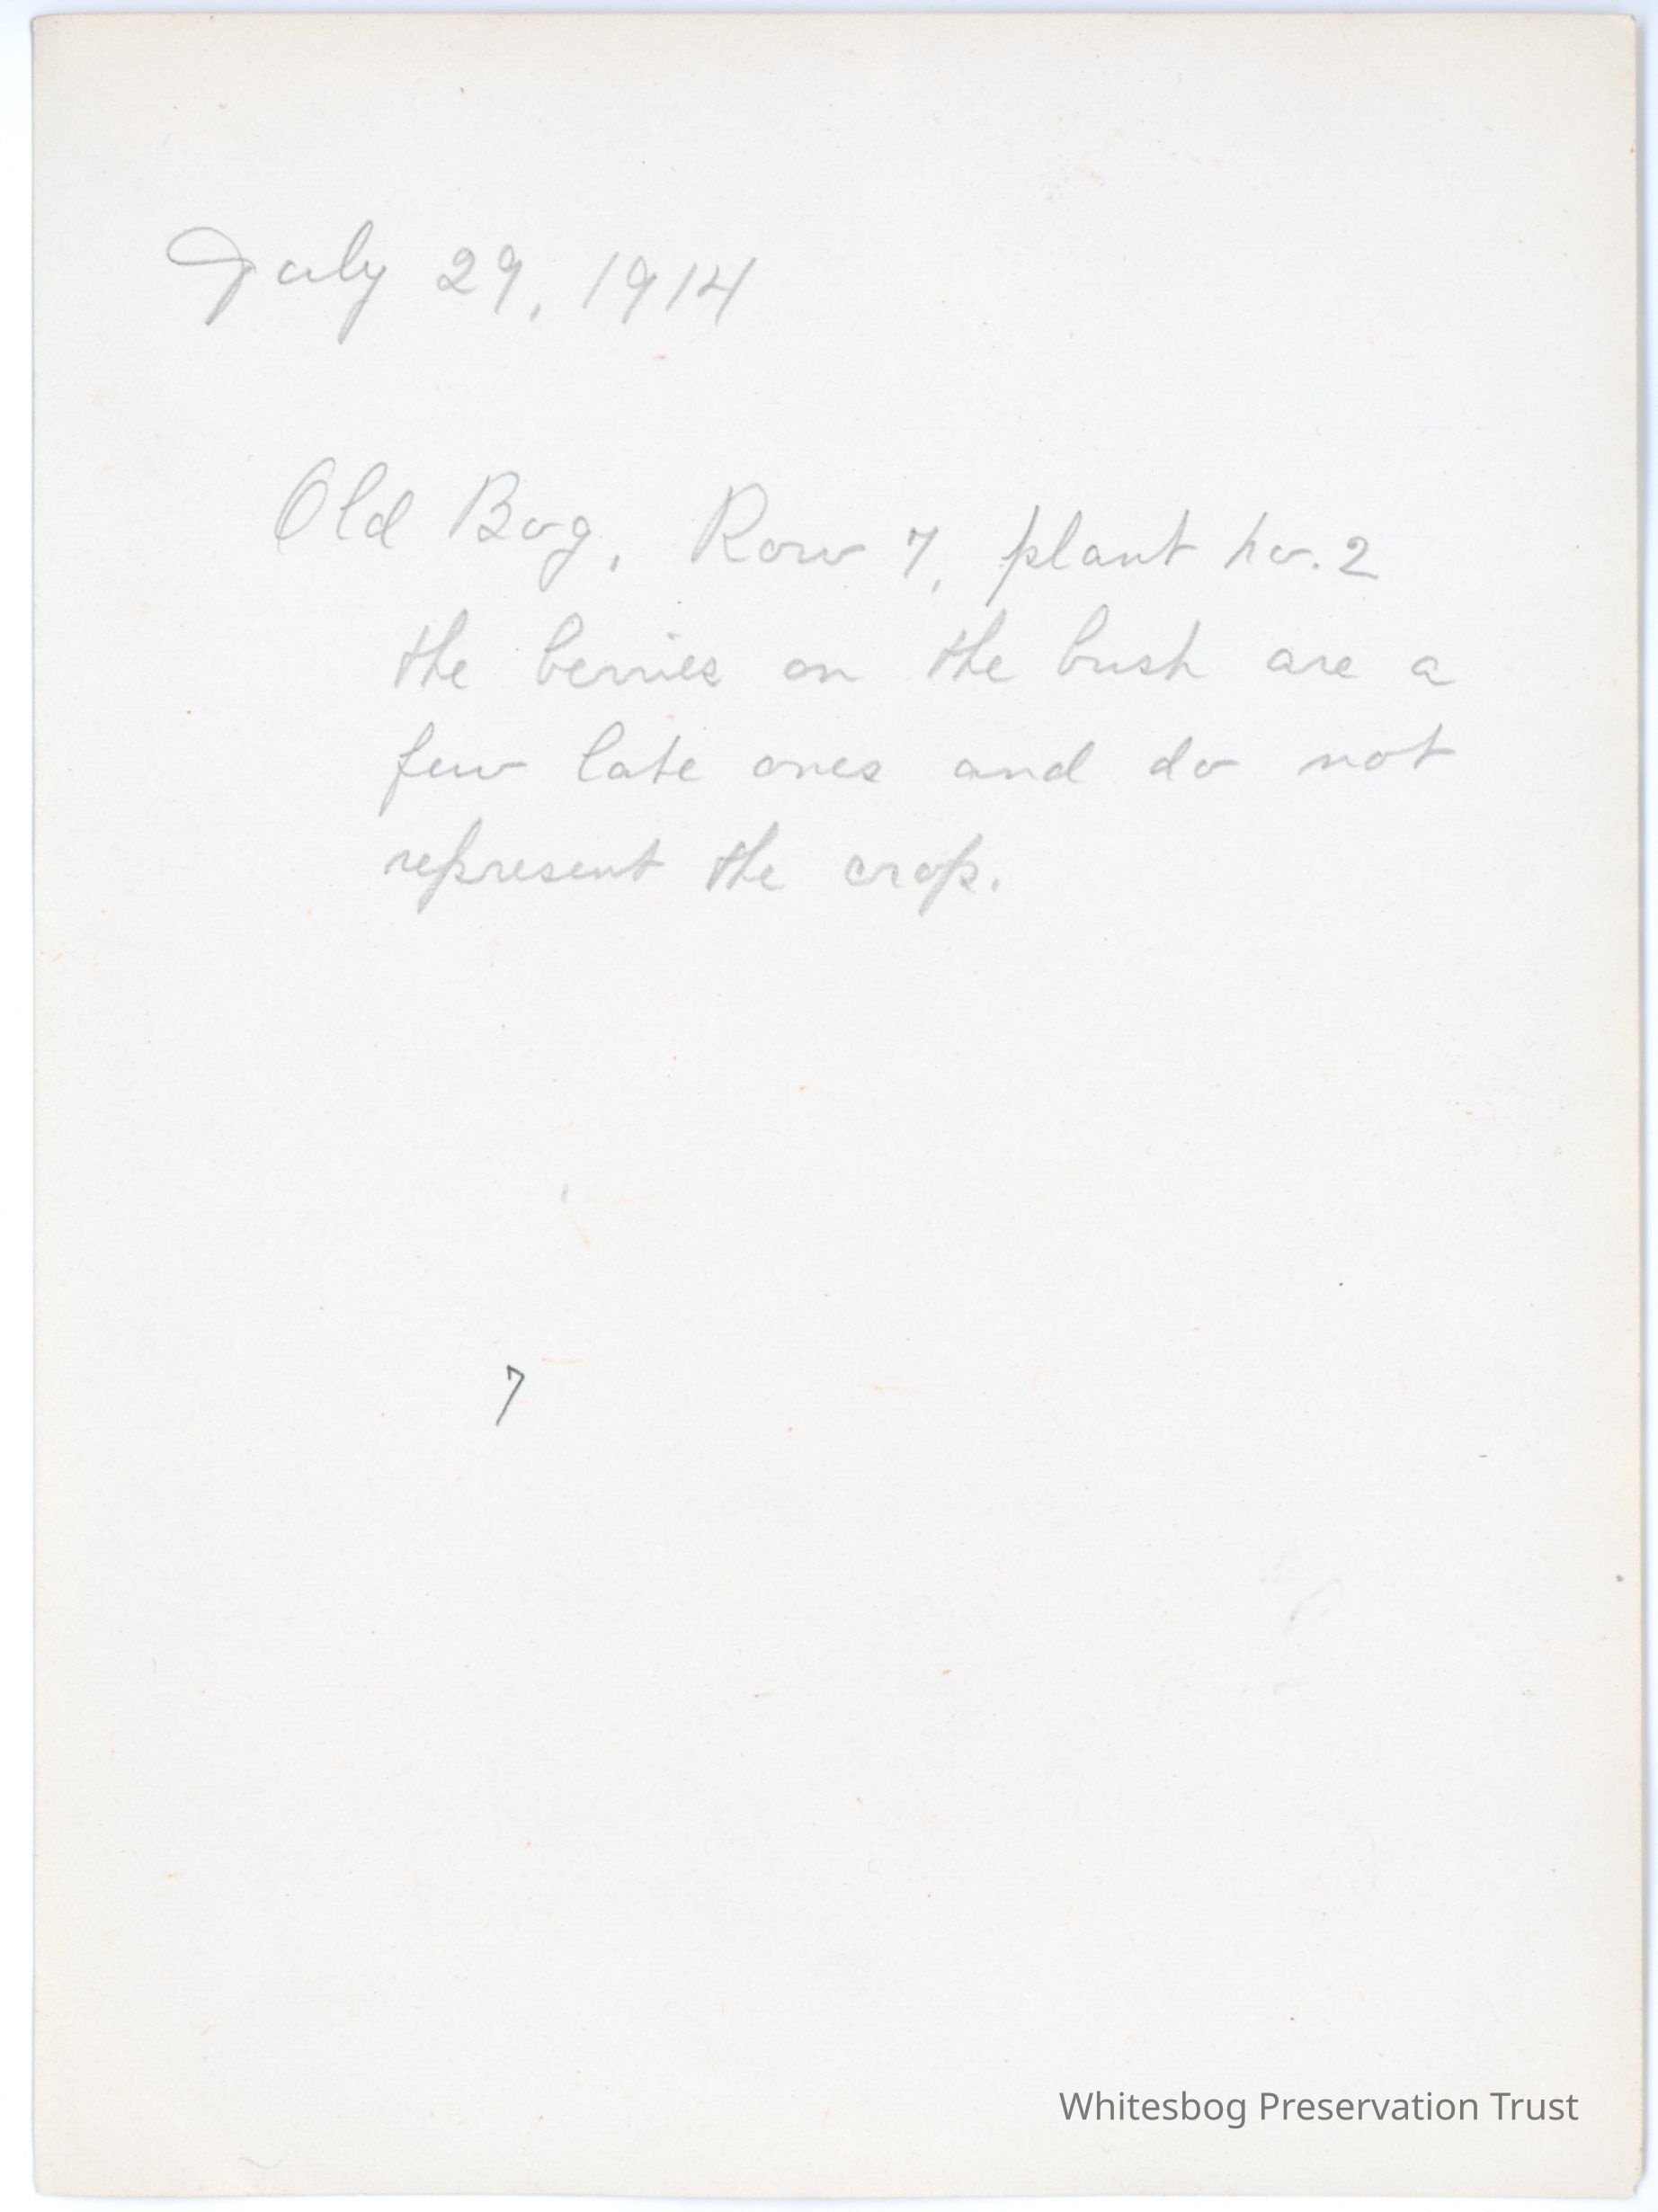 July 29, 1914
Old Bog, Row 7, plant no. 2
the berries on the bush are a
few late ones and do not
represent the crop.
7
Whitesbog Preservation Trust